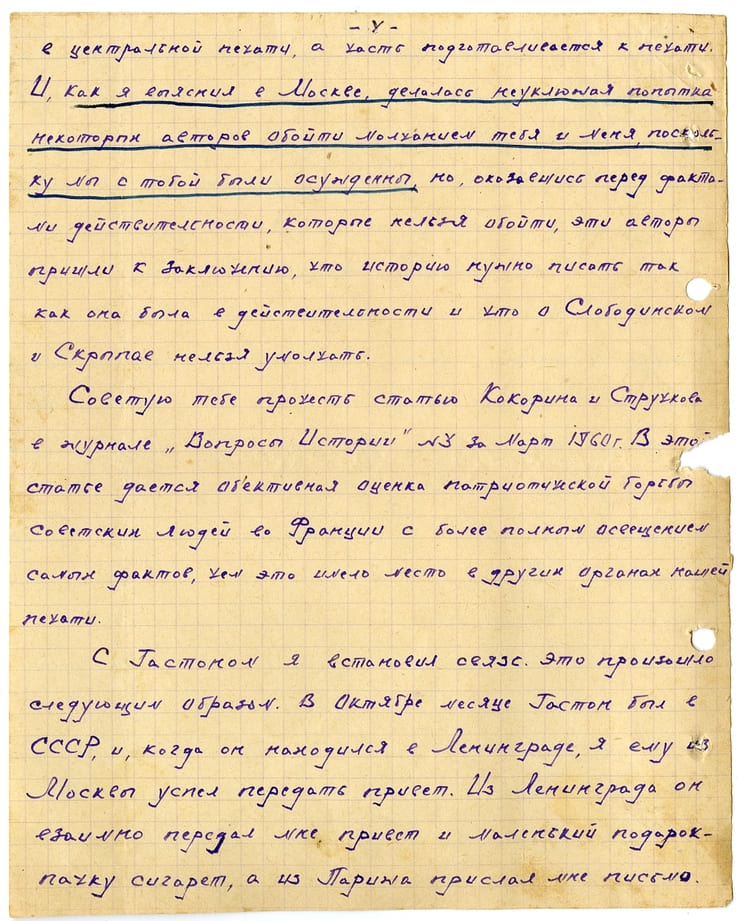 - 4 -
в центральной печати, а часть подготавливается к печати.
И, как я выяснил в Москве, делалась неуклюжая попытка
некоторых авторов обойти молчанием тебя и меня, посколь-
ку мы с тобой были осужденны, но, оказавшись перед факта-
ми действительности, которые нельзя обойти, эти авторы
пришли к заключению, что историю нужно писать так
как она была в действительности и что о Слободинском
и Скрыпае нельзя умолчать.
Советую тебе прочесть статью Кокорина и Стручкова
в журнале „Вопросы Истории" №3 за Март 1960 г. В этой
статье дается об'ективная оценка патриотичской борьбы
советских людей во Франции с более полным освещением
самых фактов, чем это имело место в других органах нашей
печати.
С Гастоном я встановил связь. Это произошло
следующим образом. В Октябре месяце Гастон был в
СССР, и, когда он находился в Ленинграде, я ему из
Москвы успел передать привет. Из Ленинграда он
взаимно передал мне привет и маленький подарок-
пачку сигарет, а из Парижа прислал мне письмо.